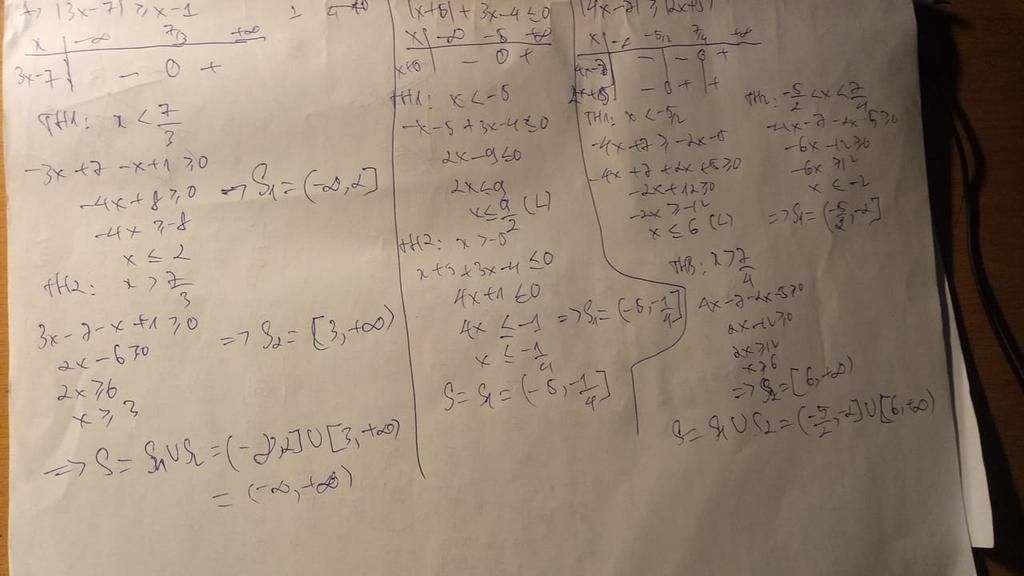 |3x-7| ≥ x-1
x | -∞ 7/3 +∞
3x-7 | - 0 +
TH1: x < 7/3
-3x+7 -x+1 ≥ 0
-4x+8 ≥ 0 => S1 = (-∞, 2]
-4x ≥ -8
x ≤ 2
TH2: x > 7/3
3x-7-x+1 ≥ 0 => S2 = [3, +∞)
2x-6 ≥ 0
2x ≥ 6
x ≥ 3
=> S = S1 ∪ S2 = (-∞, 2] ∪ [3, +∞)
= (-∞, +∞)
|x+5| + 3x-4 ≤ 0
x | -∞ -5 +∞
x+5 | - 0 +
TH1: x < -5
-x-5+3x-4 ≤ 0
2x-9 ≤ 0
2x ≤ 9
x ≤ 9/2 (L)
TH2: x > -5
x+5+3x-4 ≤ 0
4x+1 ≤ 0
4x ≤ -1 => S1 = (-5, -1/4]
x ≤ -1/4
S = S1 = (-5, -1/4]
|4x-7| ≥ |2x+5|
x | -∞ -5/2 7/4 +∞
4x-7 | - | - 0 +
2x+5 | - 0 + | +
TH1: x < -5/2
-4x+7 ≥ -2x-5
-4x+7+2x+5 ≥ 0
-2x+12 ≥ 0
-2x ≥ -12
x ≤ 6 (L)
TH2: -5/2 < x < 7/4
-4x-7-2x-5 ≥ 0
-6x-12 ≥ 0
-6x ≥ 12
x ≤ -2
=> S1 = (-5/2, -2]
TH3: x > 7/4
4x-7-2x-5 ≥ 0
2x-12 ≥ 0
2x ≥ 12
x ≥ 6
=> S2 = [6, +∞)
S = S1 ∪ S2 = (-5/2, -2] ∪ [6, +∞)